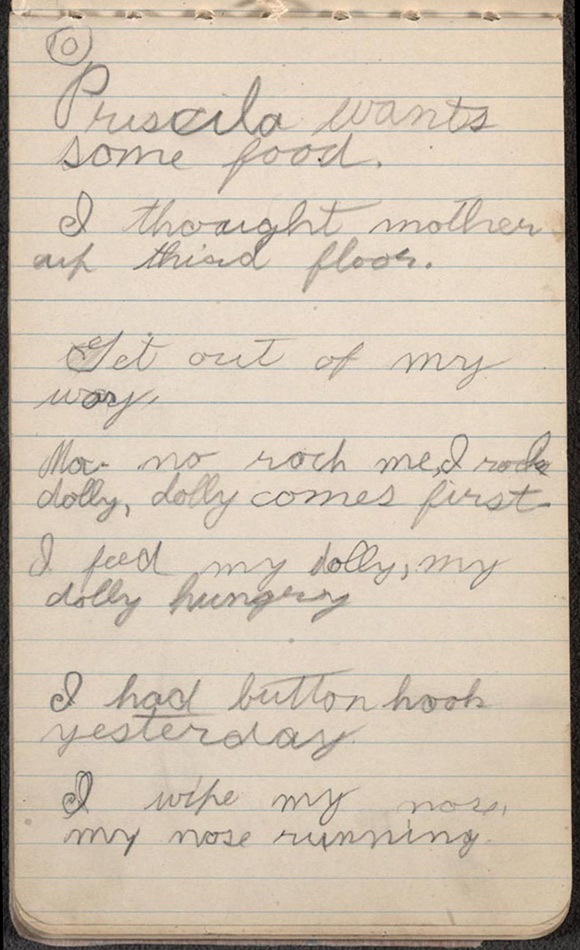 10
Priscila wants
some food.
I thought mother
up third floor.
Get out of my
way.
Mo. no rock me, I rock
dolly, dolly comes first
I feed my dolly, my
dolly hungry
I had button hook
yesterday
I wipe my nose,
my nose running.